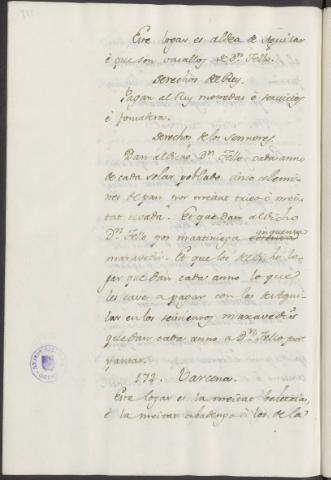 Este logar es aldea de Aguilar
é que son vasallos de Dn. Tello.
Derechos del Rey.
Pagan al Rey monedas é servicios
é fonsadera.
Derechos de los sennores.
Dan al dicho Dn. Tello cada anno
de cada solar poblado cinco celemi-
nes de pan por meitad trigo é mei-
tat cevada. Et que dan al dicho
Dn. Tello por martiniega cinquenta
maravedis. Et que los del dicho lo-
gar que dan cada anno lo que
les cave a pagar con los de Agui-
lar en los seiscientos maravedis
que dan cada anno a Dn. Tello por
yantar.
172. Varcena.
Este logar es la meitat behetria,
é la meitat abadengo é los de la